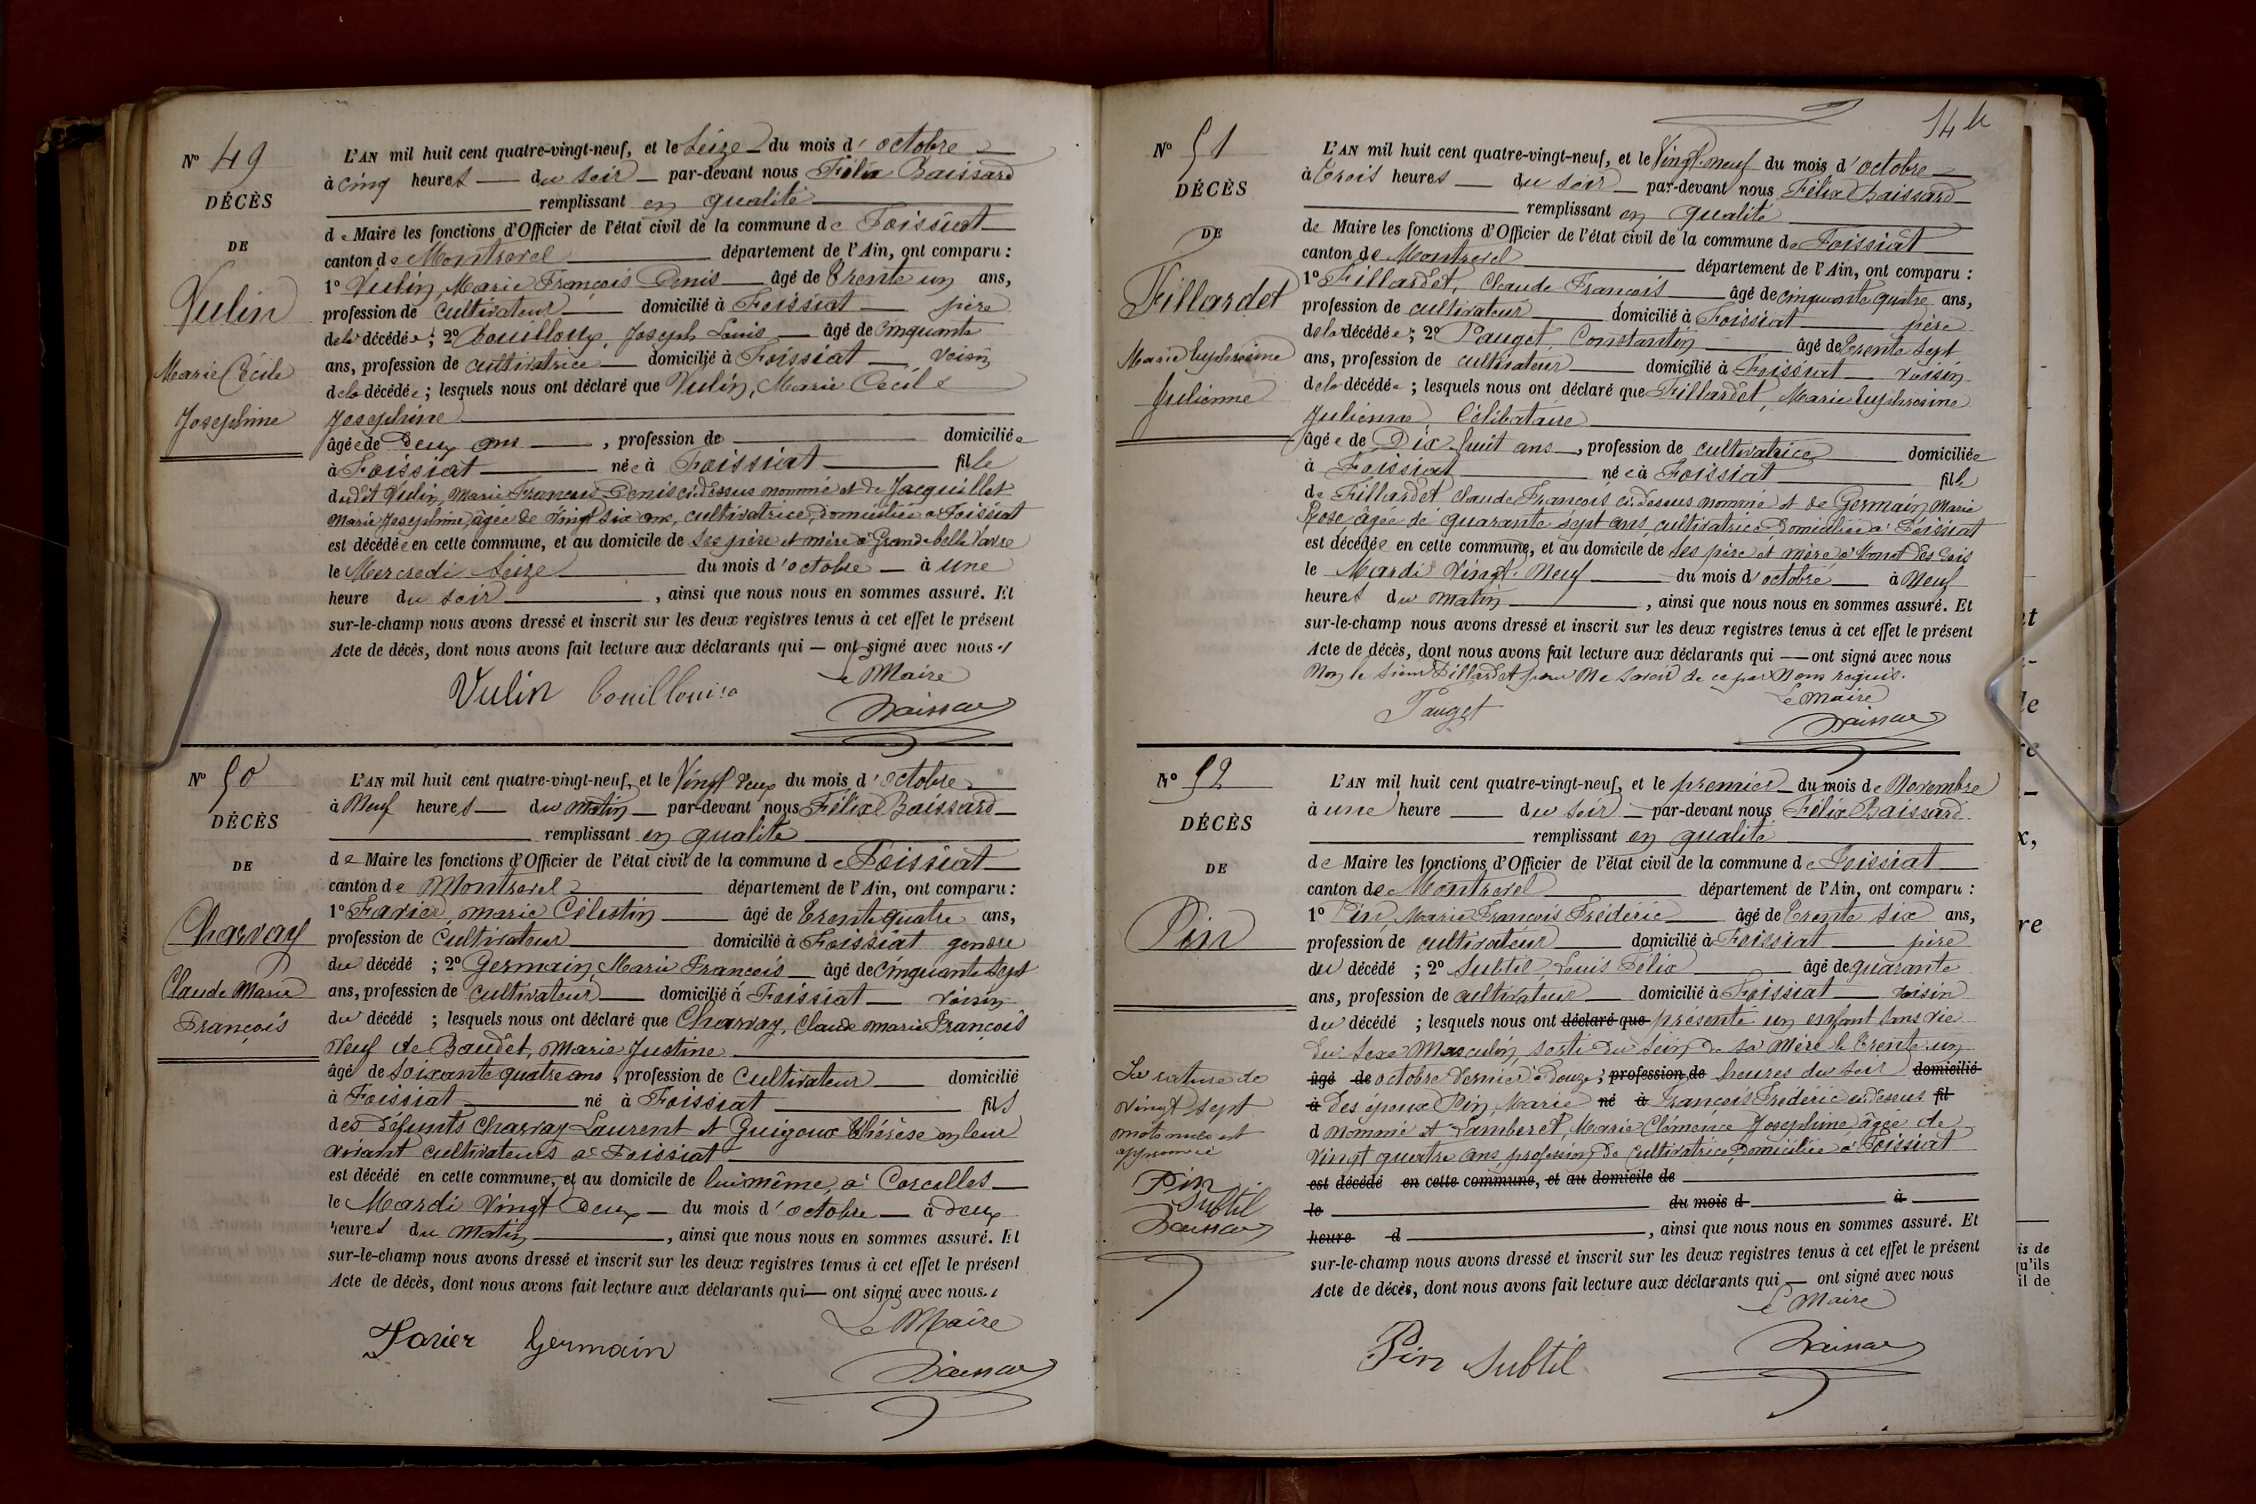 N° 49
DÉCÈS
DE
Vulin
Marie Cécile
Josephine
L'AN mil huit cent quatre-vingt-neuf, et le Seize du mois d'octobre
à cinq heures du soir par-devant nous Félix Baissard
remplissant en qualité
de Maire les fonctions d'Officier de l'état civil de la commune de Foissiat
canton de Montrevel département de l'Ain, ont comparu :
1° Vulin, Marie François Denis âgé de trente un ans,
profession de cultivateur domicilié à Foissiat père
de la décédée ; 2° Bouilloux, Joseph Louis âgé de cinquante
ans, profession de cultivatrice domicilié à Foissiat voisin
de la décédée ; lesquels nous ont déclaré que Vulin, Marie Cécile
Josephine
âgée de Deux ans , profession de domiciliée
à Foissiat née à Foissiat fille
dudit Vulin, Marie François Denis ci-dessus nommé et de Jacquillet
Marie Josephine, âgée de vingt six ans, cultivatrice, domiciliée à Foissiat
est décédée en cette commune, et au domicile de ses père et mère à Grande belle Vavre
le Mercredi Seize du mois d'octobre à une
heure du soir , ainsi que nous nous en sommes assuré. Et
sur-le-champ nous avons dressé et inscrit sur les deux registres tenus à cet effet le présent
Acte de décès, dont nous avons fait lecture aux déclarants qui — ont signé avec nous
Le Maire
Vulin Bouilloux
Baissard
N° 50
DÉCÈS
DE
Charvay
Claude Marie
François
L'AN mil huit cent quatre-vingt-neuf, et le Vingt deux du mois d'octobre
à Neuf heures du matin par-devant nous Félix Baissard
remplissant en qualité
de Maire les fonctions d'Officier de l'état civil de la commune de Foissiat
canton de Montrevel département de l'Ain, ont comparu :
1° Favier, Marie Célestin âgé de trente quatre ans,
profession de cultivateur domicilié à Foissiat gendre
du décédé ; 2° Germain, Marie François âgé de cinquante sept
ans, profession de cultivateur domicilié à Foissiat voisin
du décédé ; lesquels nous ont déclaré que Charvay, Claude Marie François
Veuf de Baudet, Marie Justine
âgé de soixante quatre ans , profession de cultivateur domicilié
à Foissiat né à Foissiat fils
des défunts Charvay Laurent et Guigoux Thérèse en leur
vivant cultivateurs à Foissiat
est décédé en cette commune, et au domicile de lui même, à Corcelles
le Mardi Vingt Deux du mois d'octobre à deux
heures du matin , ainsi que nous nous en sommes assuré. Et
sur-le-champ nous avons dressé et inscrit sur les deux registres tenus à cet effet le présent
Acte de décès, dont nous avons fait lecture aux déclarants qui — ont signé avec nous
Le Maire
Favier Germain
Baissard
N° 51
DÉCÈS
DE
Fillardet
Marie Euphrosine
Julienne
L'AN mil huit cent quatre-vingt-neuf, et le Vingt-neuf du mois d'octobre
à trois heures du soir par-devant nous Félix Baissard
remplissant en qualité
de Maire les fonctions d'Officier de l'état civil de la commune de Foissiat
canton de Montrevel département de l'Ain, ont comparu :
1° Fillardet, Claude François âgé de cinquante quatre ans,
profession de cultivateur domicilié à Foissiat père
de la décédée ; 2° Pauget, Constantin âgé de trente sept
ans, profession de cultivateur domicilié à Foissiat voisin
de la décédée ; lesquels nous ont déclaré que Fillardet, Marie Euphrosine
Julienne, Célibataire
âgée de Dix huit ans , profession de cultivatrice domiciliée
à Foissiat née à Foissiat fille
de Fillardet Claude François ci-dessus nommé et de Germain Marie
Rose âgée de quarante sept ans, cultivatrice, domiciliée à Foissiat
est décédée en cette commune, et au domicile de ses père et mère à
le Mardi Vingt-Neuf du mois d'octobre à Neuf
heures du matin , ainsi que nous nous en sommes assuré. Et
sur-le-champ nous avons dressé et inscrit sur les deux registres tenus à cet effet le présent
Acte de décès, dont nous avons fait lecture aux déclarants qui — ont signé avec nous
Non le sieur Fillardet pour ne savoir de ce par nous requis.
Le maire
Pauget
Baissard
N° 52
DÉCÈS
DE
Pin
L'AN mil huit cent quatre-vingt-neuf, et le premier du mois de Novembre
à une heure du soir par-devant nous Félix Baissard
remplissant en qualité
de Maire les fonctions d'Officier de l'état civil de la commune de Foissiat
canton de Montrevel département de l'Ain, ont comparu :
1° Pin, Marie François Frédéric âgé de trente six ans,
profession de cultivateur domicilié à Foissiat père
du décédé ; 2° Subtil, Louis Félix âgé de quarante
ans, profession de cultivateur domicilié à Foissiat voisin
du décédé ; lesquels nous ont déclaré que présenté un enfant sans vie
du sexe Masculin, sorti du sein de sa mère le trente un
âgé de octobre dernier à douze ; profession de heures du soir domicilié
à des époux Pin, Marie né à François Frédéric ci-dessus fil
d nommé et Lamberet, Marie Clémence Josephine âgée de
vingt quatre ans, profession de cultivatrice domiciliée à Foissiat
est décédé en cette commune, et au domicile de
le du mois d à
heure d , ainsi que nous nous en sommes assuré. Et
sur-le-champ nous avons dressé et inscrit sur les deux registres tenus à cet effet le présent
Acte de décès, dont nous avons fait lecture aux déclarants qui — ont signé avec nous
Le Maire
Pin Subtil
Baissard
La rature de
vingt sept
mots nuls est
approuvée
Pin
Subtil
Baissard